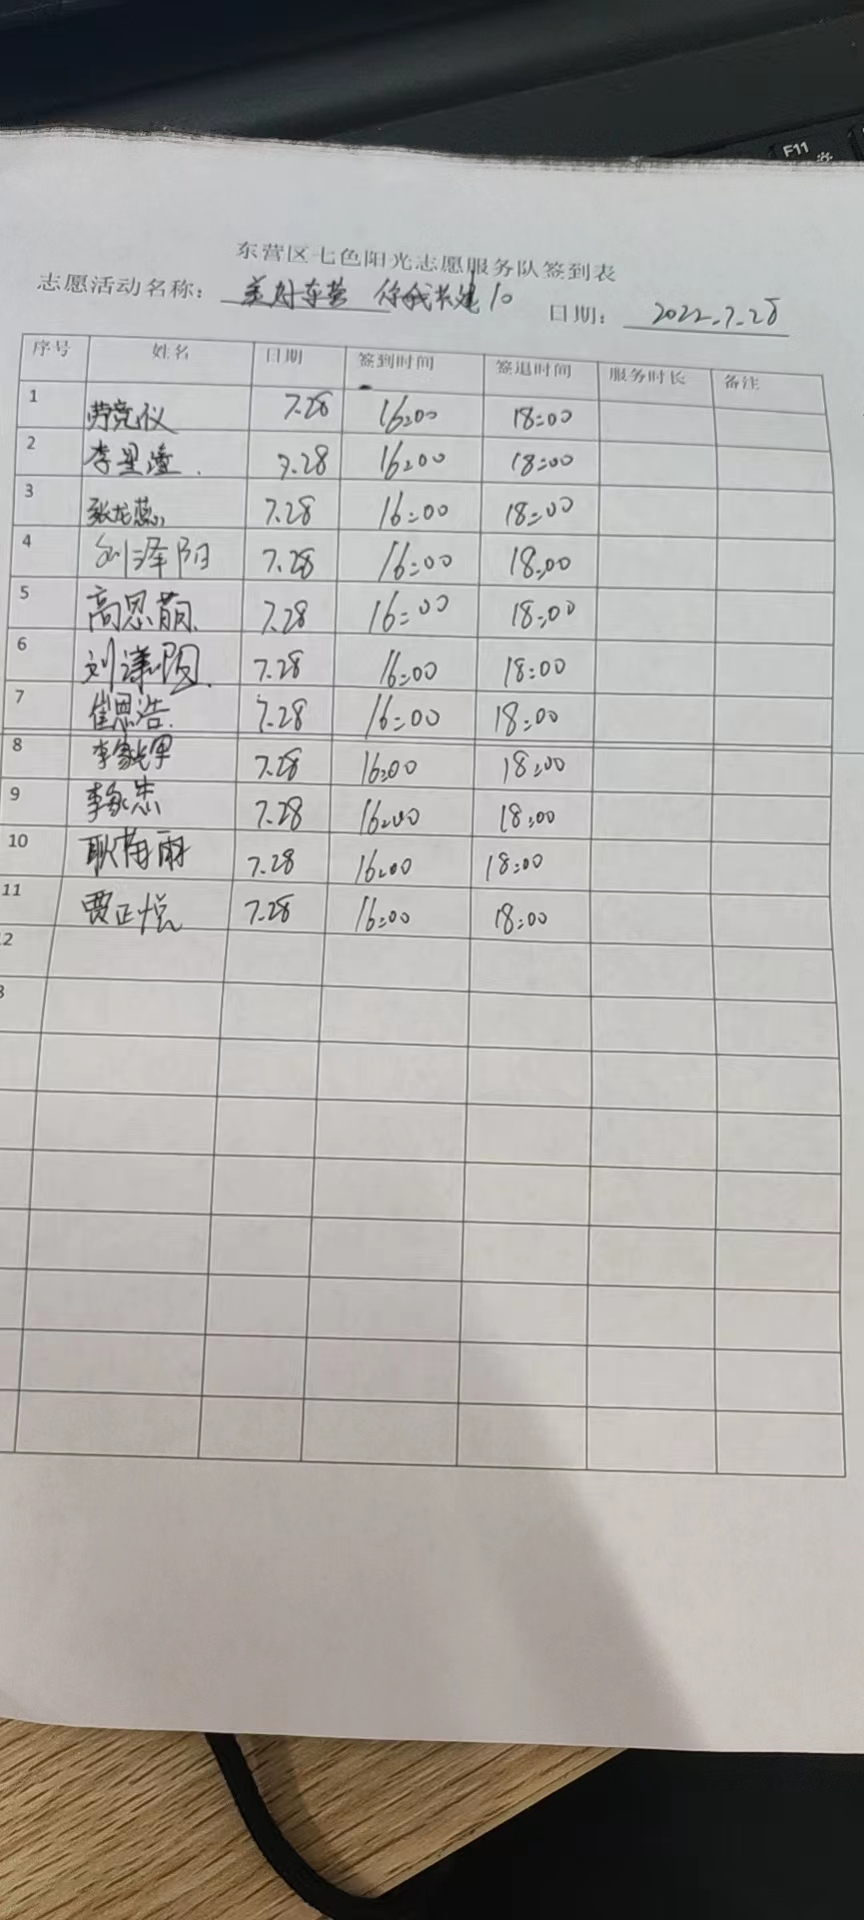 F11
东营区七色阳光志愿服务队签到表
志愿活动名称： 美好东营 你我共建 10 日期： 2022.7.28
序号 姓名 日期 签到时间 签退时间 服务时长 备注
1 劳竞仪 7.28 16:00 18:00
2 李星潼 7.28 16:00 18:00
3 张龙蕊 7.28 16:00 18:00
4 刘泽阳 7.28 16:00 18:00
5 高恩萌 7.28 16:00 18:00
6 刘漾 7.28 16:00 18:00
7 崔恩浩 7.28 16:00 18:00
8 李家军 7.28 16:00 18:00
9 李家忠 7.28 16:00 18:00
10 耿雨 7.28 16:00 18:00
11 贾正悦 7.28 16:00 18:00
2
3